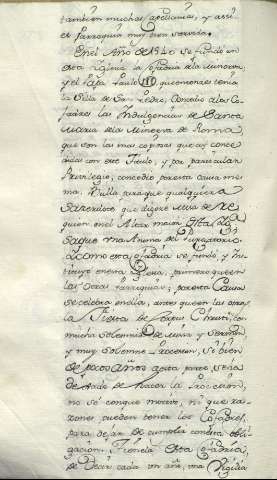 tambien muchas capellanias, y assi
es Parroquia muy bien servida.
En el Año de 1540 se fundò en
esta Iglesia la Cofadria de la Minerva,
y el Papa Paulo III, que entonces tenia
la Silla de San Pedro, concedio à los Co-
fadres las Indulgencias de Santa
Maria de la Minerva de Roma
que son las mas copiosas que ay conce
didas con este Titulo, y por particular
Privilegio, concedio por esta Causa me
ma. Bulla para que qualquiera
Sacerdote que dixere Missa de Re
quien en el Altar maior
saque una Anima del Purgatorio
como esta Cofadria se fundo, y ins
tituyo en esta Iglesia, primero que en
las otras Parroquias; por esta Causa
se celebra en ella, antes que en las otras,
la Fiesta de Corpus Christi, con
mucha solemnidad de Missa y Sermon,
y muy solemne Procession, si bien
de pocos Años a esta parte se ha
dexado de hacer la Procession,
no se conque motivo, ni que ra-
zones pueden tener los Cofadres,
para dejar de cumplir con esta obli-
gacion, Tienela esta Cofadria,
de Decir cada un año, una Vigilia